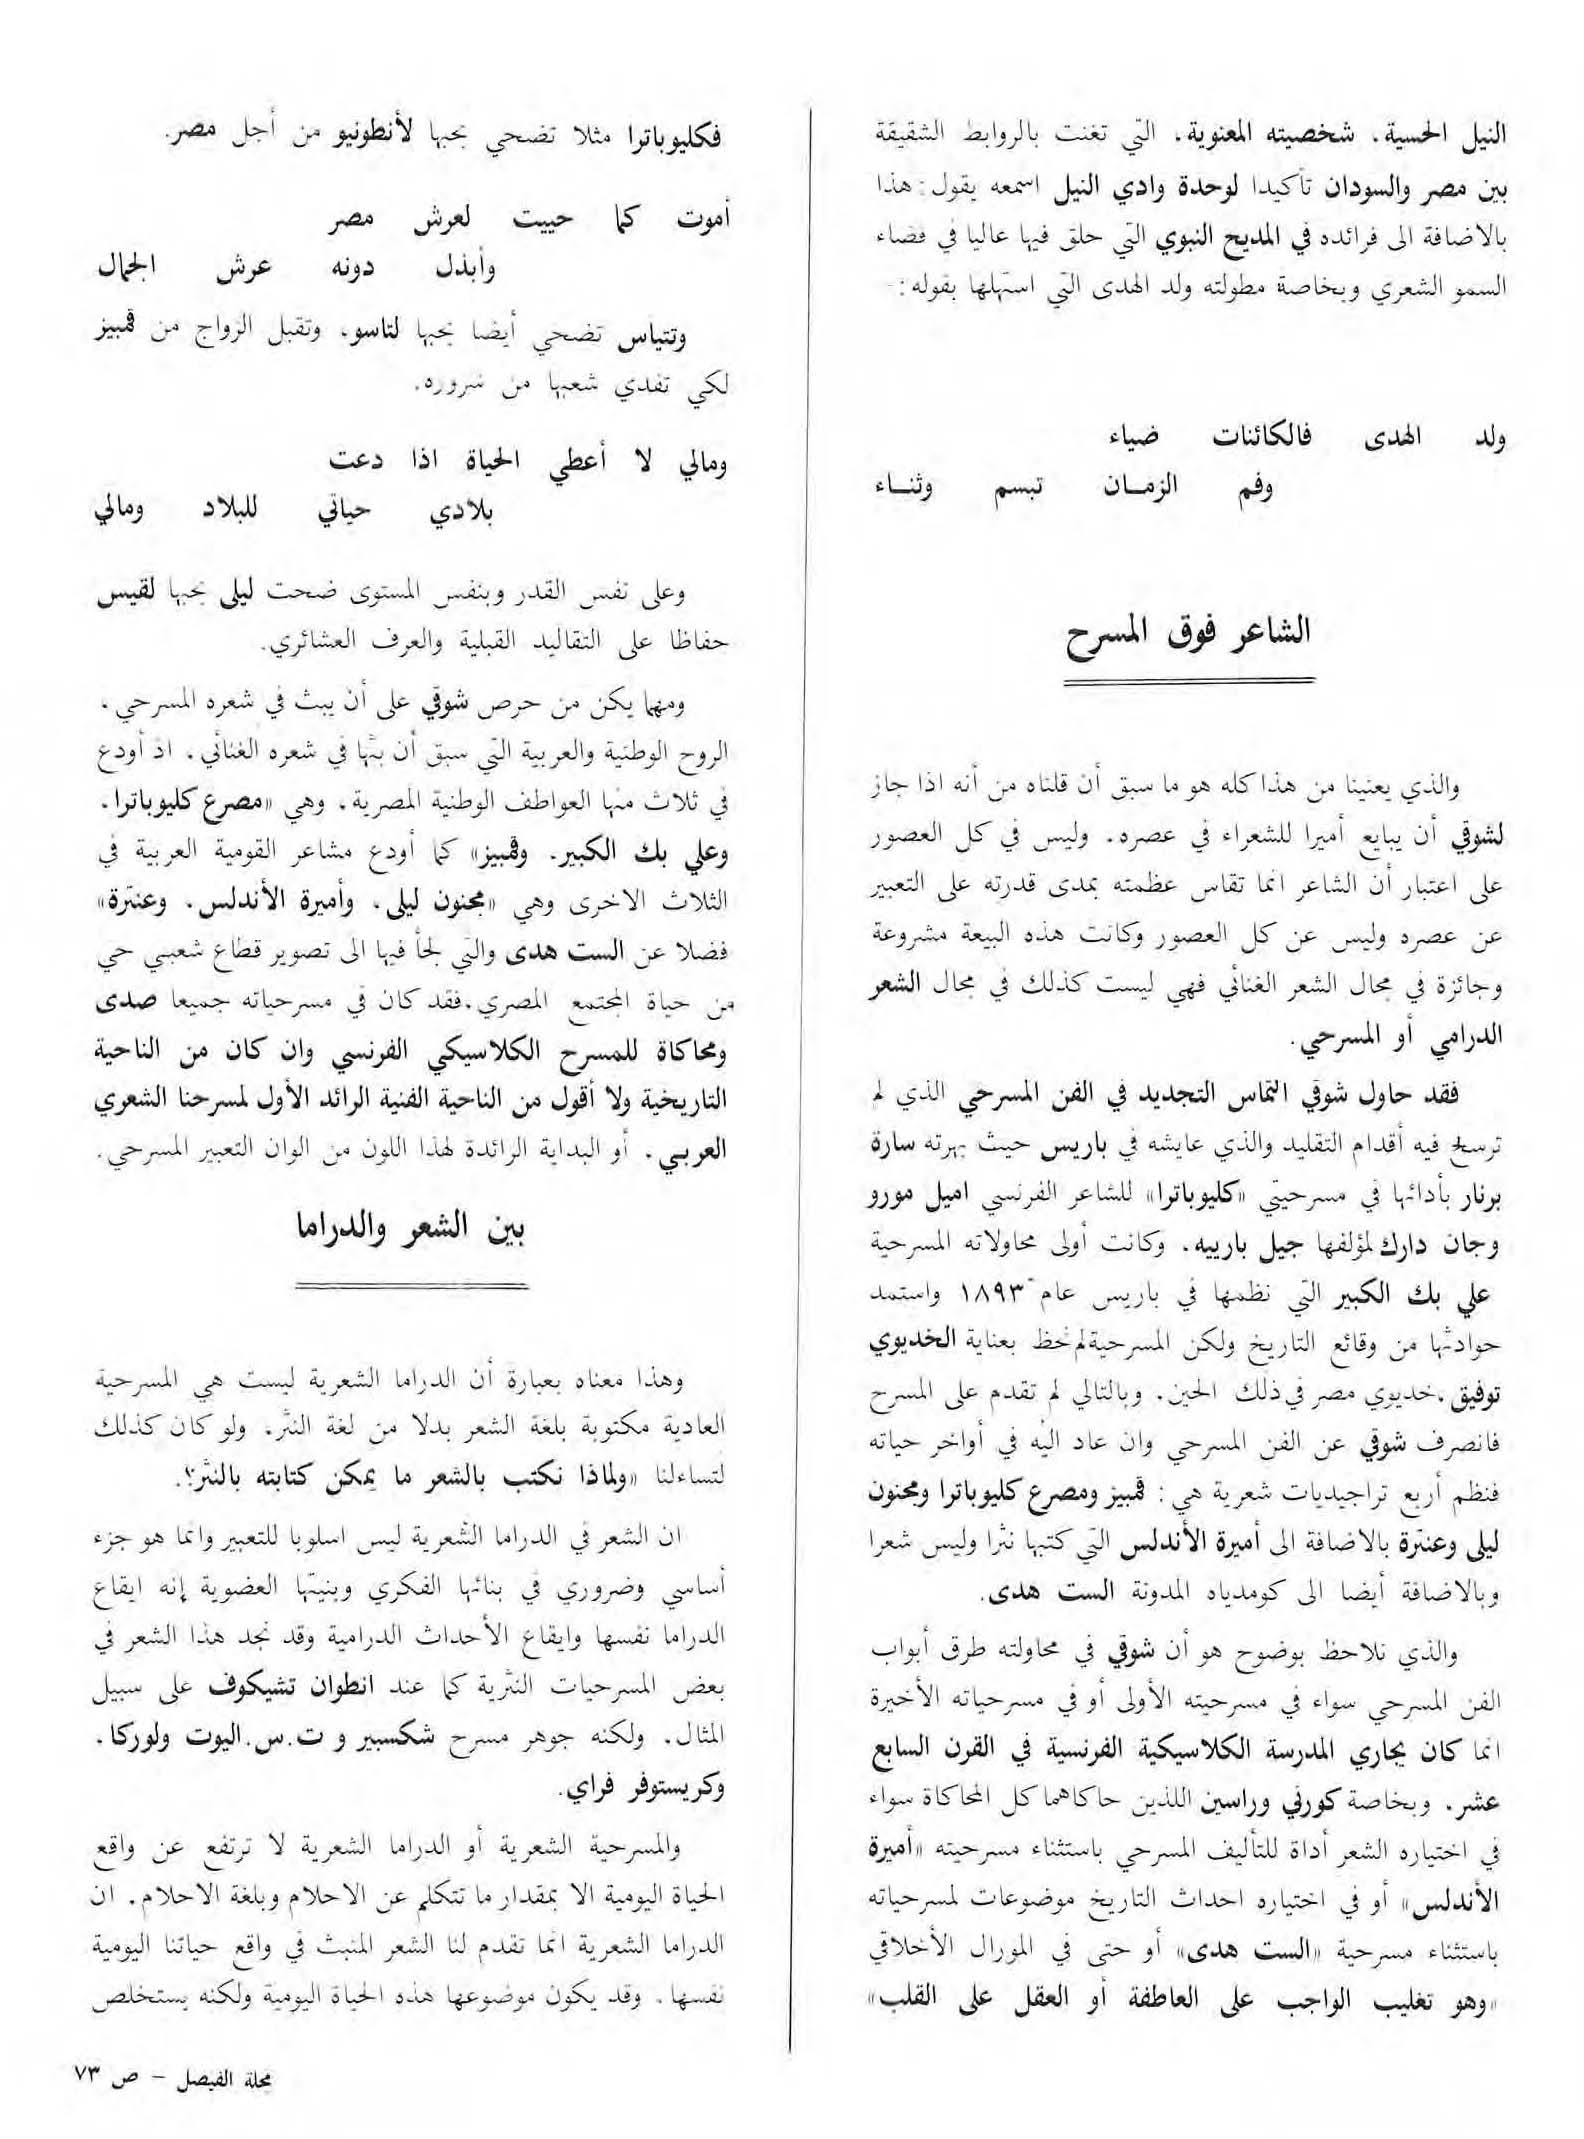 النيل الحسية، شخصيته المعنوية، التي تغنت بالروابط الشقيقة
بين مصر والسودان تأكيدا لوحدة وادي النيل اسمعه يقول: هذا
بالاضافة الى فرائده في المديح النبوي التي حلق فيها عاليا في فضاء
السمو الشعري وبخاصة مطولته ولد الهدى التي استهلها بقوله:-
ولد الهدى فالكائنات ضياء
وفم الزمـان تبسم وثنـاء
الشاعر فوق المسرح
والذي يعنينا من هذا كله هو ما سبق أن قلناه من أنه اذا جاز
لشوقي أن يبايع أميرا للشعراء في عصره، وليس في كل العصور
على اعتبار أن الشاعر انما تقاس عظمته بمدى قدرته على التعبير
عن عصره وليس عن كل العصور وكانت هذه البيعة مشروعة
وجائزة في مجال الشعر الغنائي فهي ليست كذلك في مجال الشعر
الدرامي أو المسرحي.
فقد حاول شوقي التماس التجديد في الفن المسرحي الذي لم
ترسخ فيه أقدام التقليد والذي عايشه في باريس حيث بهرته سارة
برنار بأدائها في مسرحيتي «كليوباترا» للشاعر الفرنسي اميل مورو
وجان دارك لمؤلفها جيل بارييه، وكانت أولى محاولاته المسرحية
علي بك الكبير التي نظمها في باريس عام ١٨٩٣ واستمد
حوادثها من وقائع التاريخ ولكن المسرحية لم تحظ بعناية الخديوي
توفيق، خديوي مصر في ذلك الحين، وبالتالي لم تقدم على المسرح
فانصرف شوقي عن الفن المسرحي وان عاد اليه في أواخر حياته
فنظم أربع تراجيديات شعرية هي: قمبيز ومصرع كليوباترا ومجنون
ليلى وعنترة بالاضافة الى أميرة الأندلس التي كتبها نثرا وليس شعرا
وبالاضافة أيضا الى كومدياه المدونة الست هدى.
والذي نلاحظ بوضوح هو أن شوقي في محاولته طرق أبواب
الفن المسرحي سواء في مسرحيته الأولى أو في مسرحياته الأخيرة
انما كان يجاري المدرسة الكلاسيكية الفرنسية في القرن السابع
عشر، وبخاصة كورني وراسين اللذين حاكاهما كل المحاكاة سواء
في اختياره الشعر أداة للتأليف المسرحي باستثناء مسرحيته «أميرة
الأندلس» أو في اختياره احداث التاريخ موضوعات لمسرحياته
باستثناء مسرحية «الست هدى» أو حتى في المورال الأخلاقي
«وهو تغليب الواجب على العاطفة أو العقل على القلب»
فكليوباترا مثلا تضحي بحبها لأنطونيو من أجل مصر.
أموت كما حييت لعرش مصر
وأبذل دونه عرش الجمال
وتتياس تضحي أيضا بحبها لتاسو، وتقبل الزواج من قمبيز
لكي تفدي شعبها من شروره.
ومالي لا أعطي الحياة اذا دعت
بلادي حياتي للبلاد ومالي
وعلى نفس القدر وبنفس المستوى ضحت ليلى بحبها لقيس
حفاظا على التقاليد القبلية والعرف العشائري.
ومهما يكن من حرص شوقي على أن يبث في شعره المسرحي،
الروح الوطنية والعربية التي سبق أن بثها في شعره الغنائي، اذ أودع
في ثلاث منها العواطف الوطنية المصرية، وهي «مصرع كليوباترا،
وعلي بك الكبير، وقمبيز» كما أودع مشاعر القومية العربية في
الثلاث الاخرى وهي «مجنون ليلى، وأميرة الأندلس، وعنترة»
فضلا عن الست هدى والتي لجأ فيها الى تصوير قطاع شعبي حي
من حياة المجتمع المصري. فقد كان في مسرحياته جميعا صدى
ومحاكاة للمسرح الكلاسيكي الفرنسي وان كان من الناحية
التاريخية ولا أقول من الناحية الفنية الرائد الأول لمسرحنا الشعري
العربي، أو البداية الرائدة لهذا اللون من الوان التعبير المسرحي.
بين الشعر والدراما
وهذا معناه بعبارة أن الدراما الشعرية ليست هي المسرحية
العادية مكتوبة بلغة الشعر بدلا من لغة النثر، ولو كان كذلك
لتساءلنا «ولماذا نكتب بالشعر ما يمكن كتابته بالنثر؟.
ان الشعر في الدراما الشعرية ليس اسلوبا للتعبير وانما هو جزء
أساسي وضروري في بنائها الفكري وبنيتها العضوية إنه ايقاع
الدراما نفسها وايقاع الأحداث الدرامية وقد نجد هذا الشعر في
بعض المسرحيات النثرية كما عند انطوان تشيكوف على سبيل
المثال، ولكنه جوهر مسرح شكسبير و ت.س.اليوت ولوركا،
وكريستوفر فراي.
والمسرحية الشعرية أو الدراما الشعرية لا ترتفع عن واقع
الحياة اليومية الا بمقدار ما تتكلم عن الاحلام وبلغة الاحلام، ان
الدراما الشعرية انما تقدم لنا الشعر المنبث في واقع حياتنا اليومية
نفسها، وقد يكون موضوعها هذه الحياة اليومية ولكنه يستخلص
مجلة الفيصل - ص ٧٣